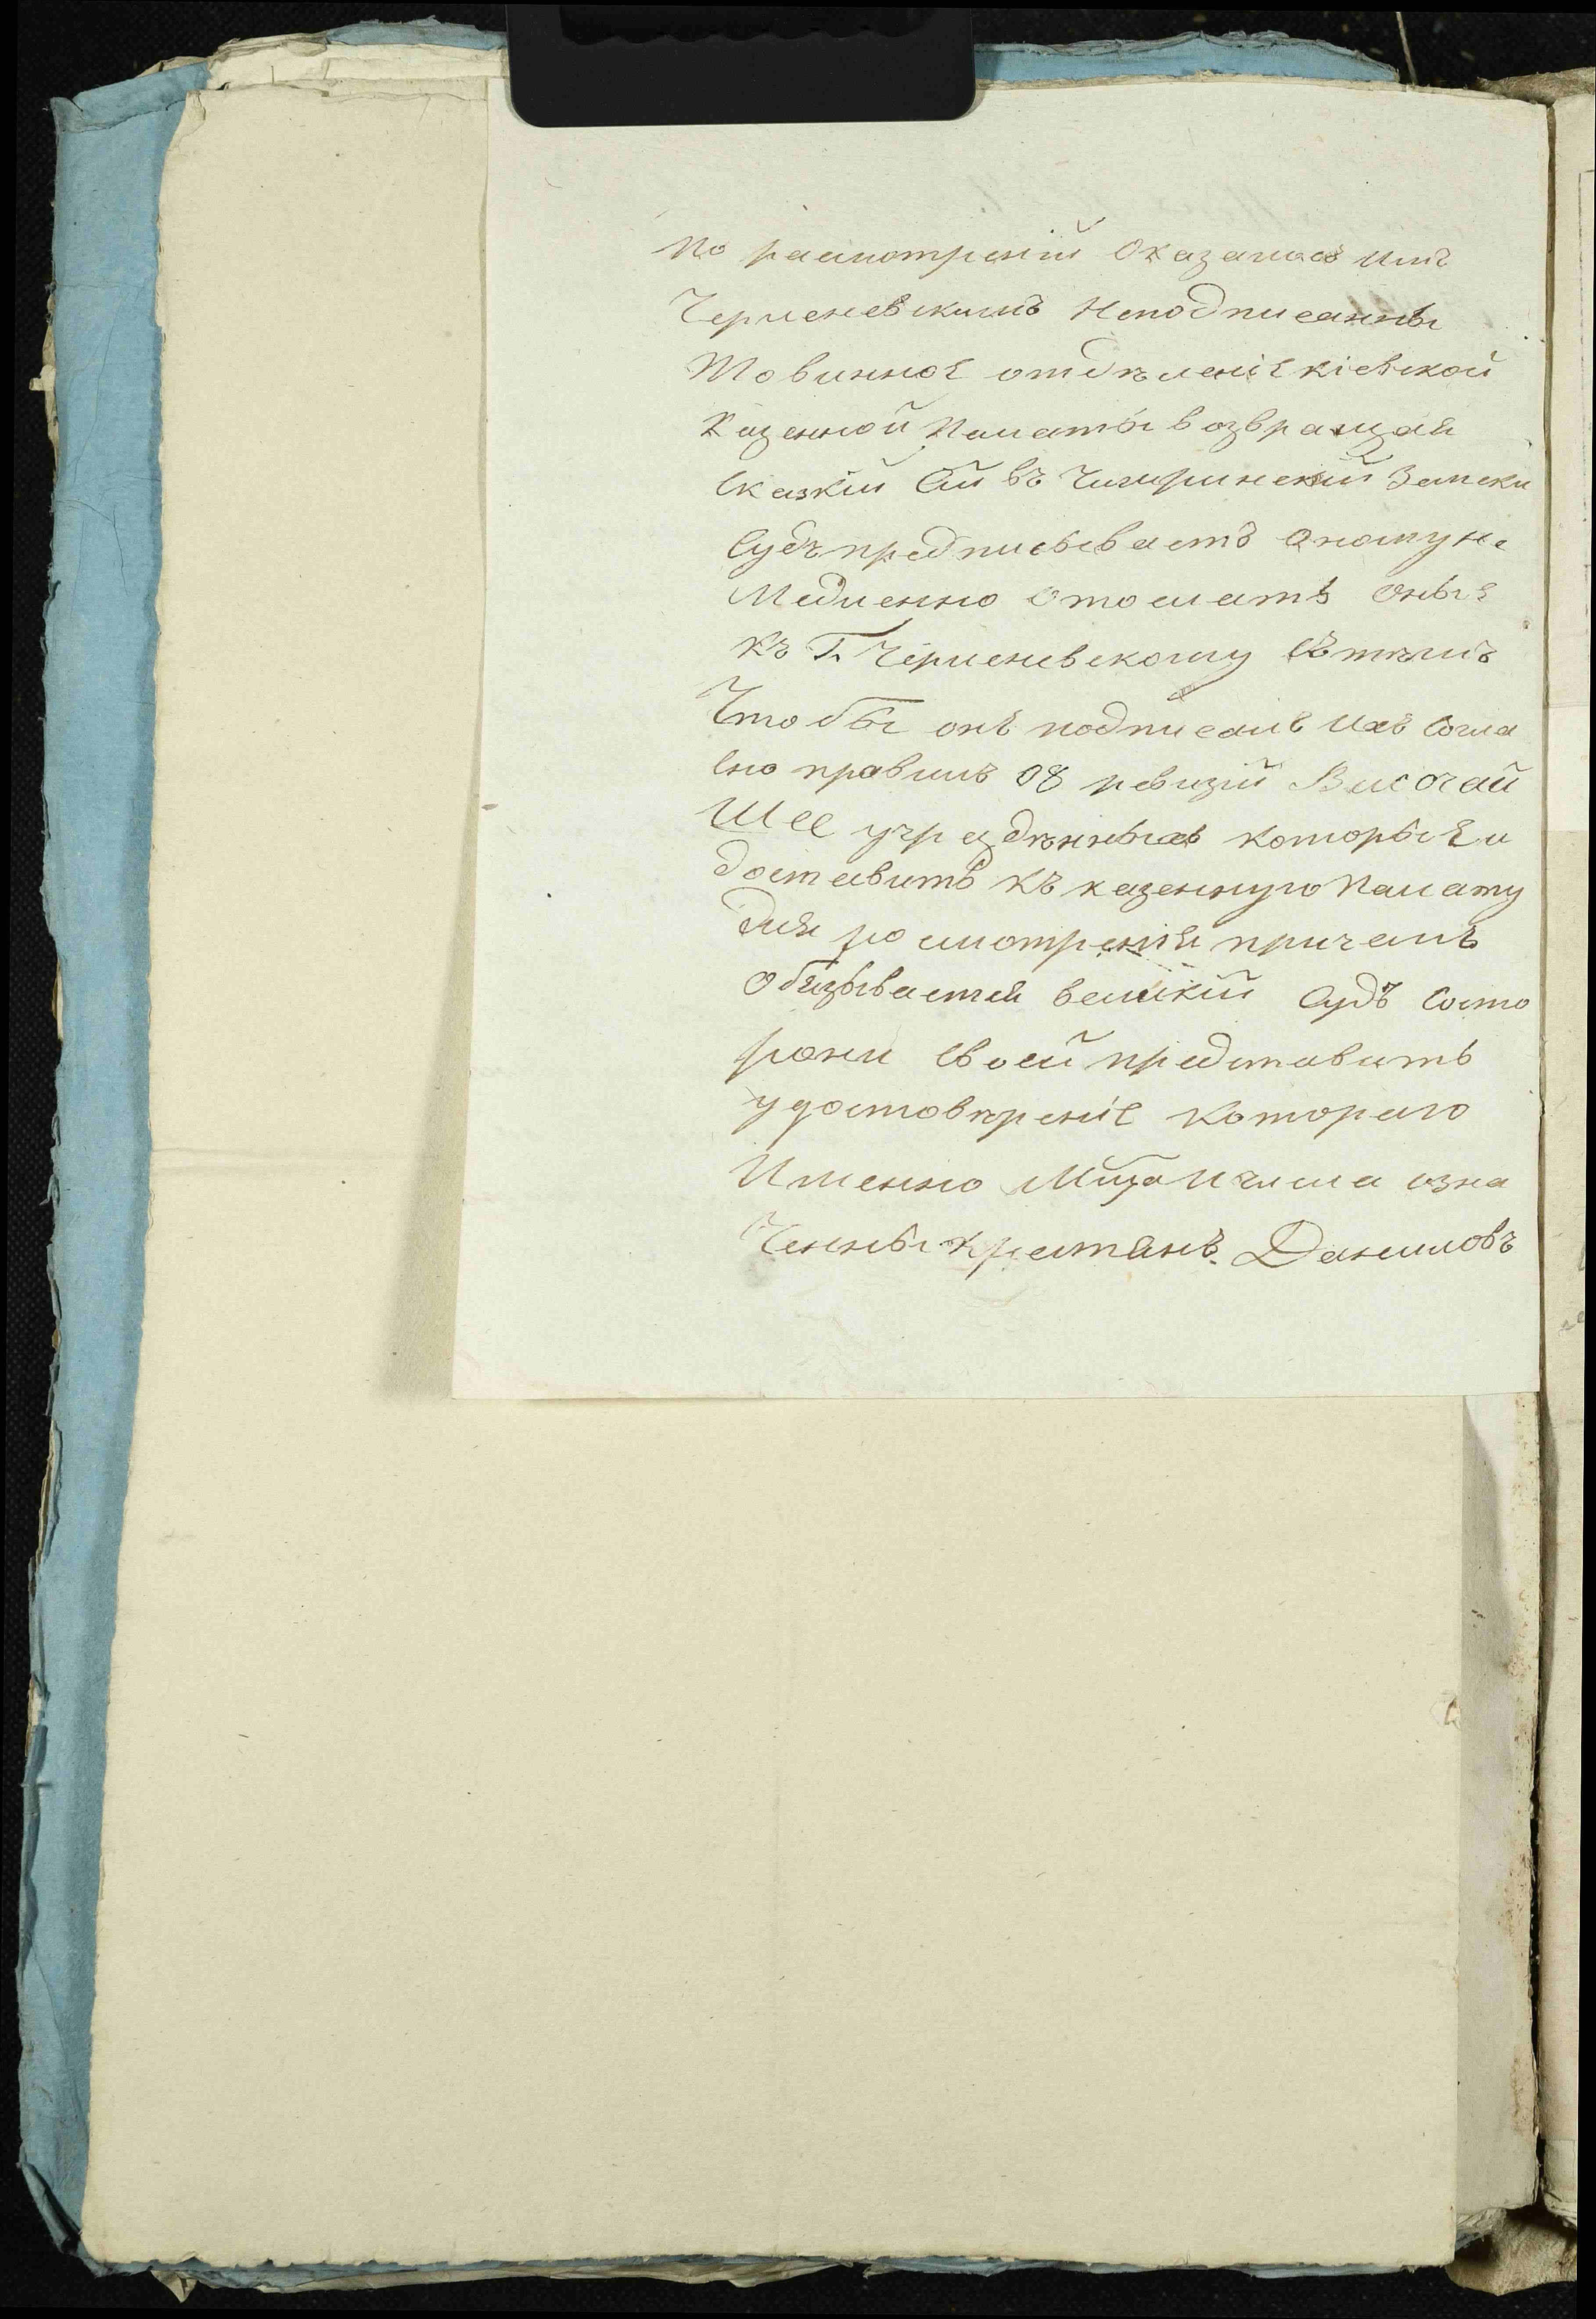 По расмотреній Оказалось имъ
Черленевскимъ Неподписанны
То винное отдѣленіе Кіевской
Казенной Палаты возвращая
Сказкіи Сіи въ Чигиринский Земски
Судъ предписываетъ Оному не
Медленно Отослать Оные
Къ Г. Черленевскому Сътѣмъ
Что бы онъ подписалъ ихъ Согла
сно правилъ 08 ревизіи Височай
Шее учрежденныхъ Которые и
доставить Къ казенную Палату
Для росмотренія причемъ
Обязывается Судъ Состо
рони Своей представить
удостовѣреніе Котораго
Именно Мца и числа озна
Ченны крестянъ Даниловъ